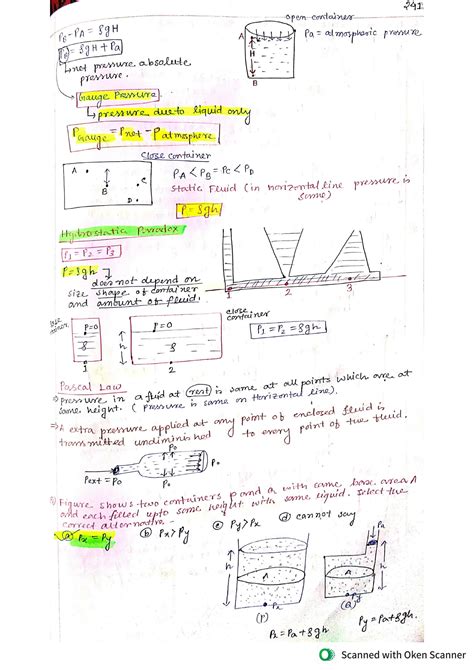 241
open container
P_B - P_A = ρgH
P_B = ρgH + Pa
A
H
B
Pa = atmospheric pressure
↳ net pressure absolute
pressure.
→ Gauge Pressure
↳ pressure due to liquid only
P_Gauge = P_net - P_atmosphere
Close container
A
B
C
D
P_A < P_B = P_C < P_D
Static Fluid (in horizontal line pressure is
same)
P = ρgh
Hydrostatic Paradox
P_1 = P_2 = P_3
P = ρgh
does not depend on
size shape of container
and amount of fluid.
1 2 3
close
container
P=0
h
ρ
1
P=0
h
ρ
2
close
container
P_1 = P_2 = ρgh
Pascal Law
⇒ pressure in a fluid at rest is same at all points which are at
same height. (pressure is same on Horizontal line).
⇒ A extra pressure applied at any point of enclosed fluid is
transmitted undiminished to every point of the fluid.
Po
Po
Po
Pext = Po
Figure shows two containers P and Q with same base area A
and each filled upto same height with same liquid. Select the
correct alternative -
(a) Px = Py
(b) Px > Py
(c) Py > Px
(d) cannot say
h
A
Px
(P)
Px = Pa + ρgh
Pa
h
A
Py
(Q)
Py = Pa + ρgh.
Scanned with Oken Scanner